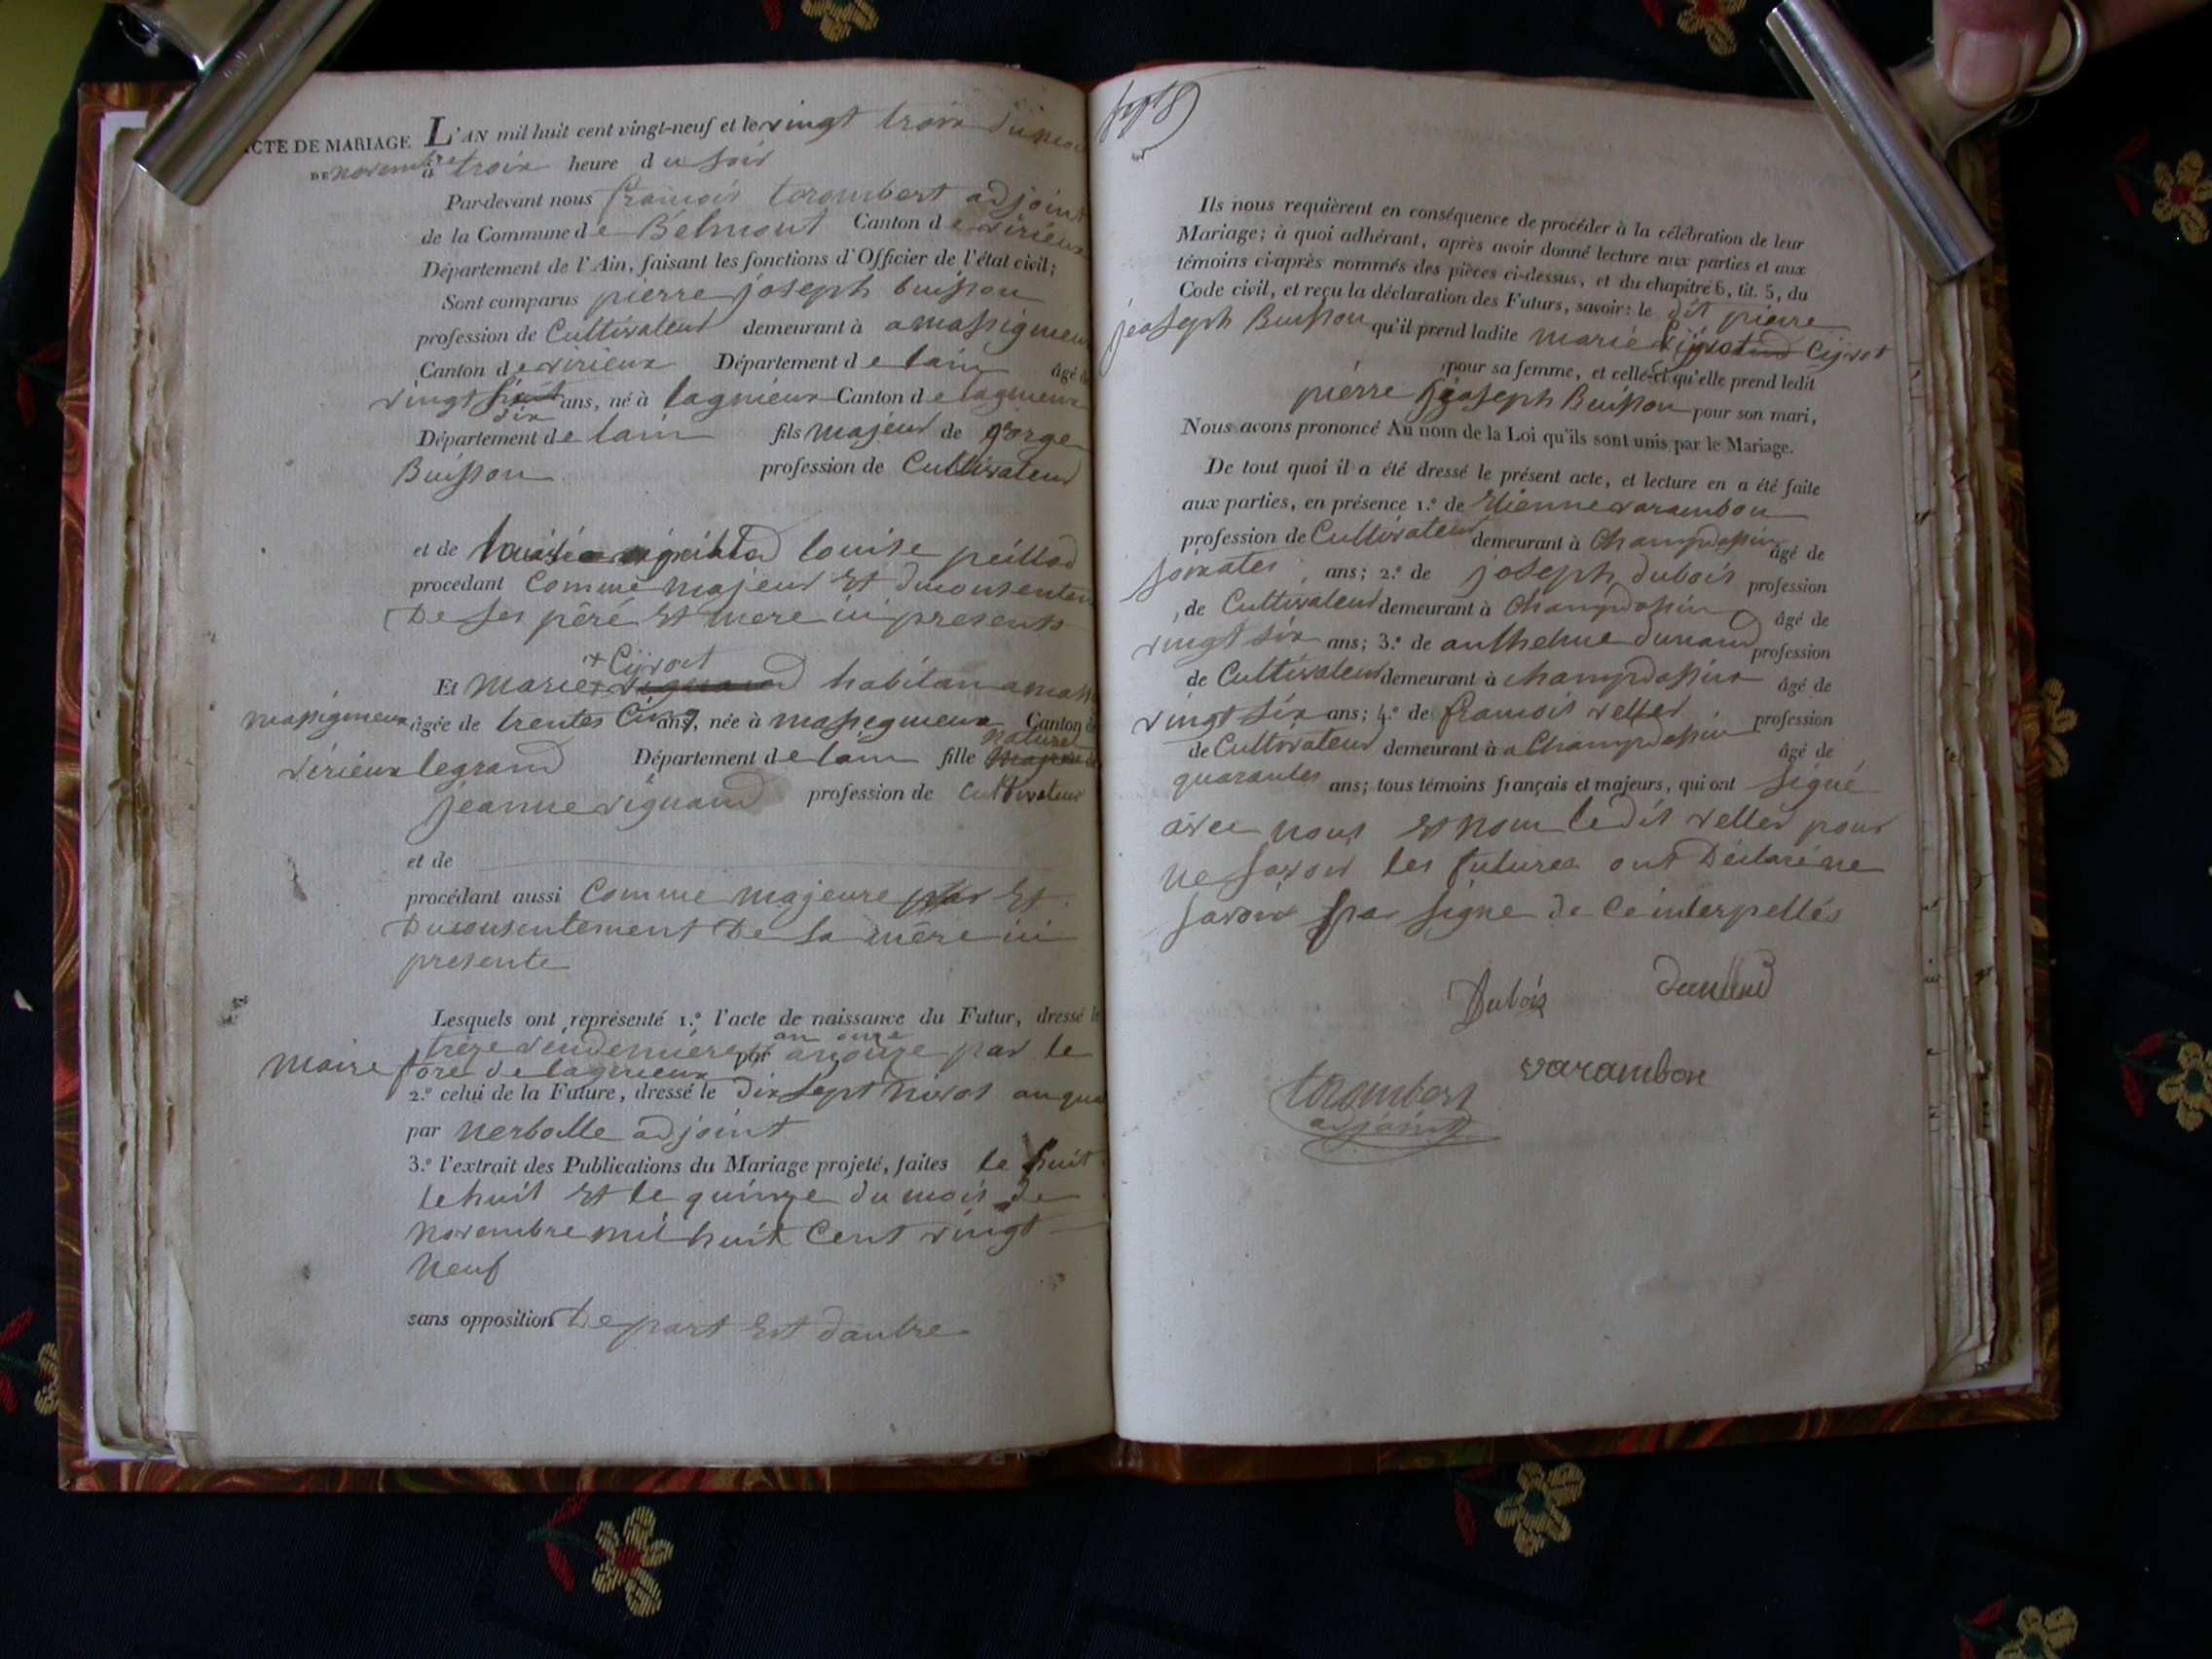 ACTE DE MARIAGE L'AN mil huit cent vingt-neuf et le vingt trois du mois
DE novembre à trois heure du soir
Par-devant nous francois torombert adjoint
de la Commune de Belmont Canton de virieux
Département de l'Ain, faisant les fonctions d'Officier de l'état civil;
Sont comparus pierre joseph buisson
profession de Cultivateur demeurant à a massigmeu
Canton de virieux Département de lain âgé de
vingt six ans, né à lagnieux Canton de lagnieux
Département de lain fils majeur de gorge
Buisson profession de Cultivateur
et de louise peillod
procedant Comme majeur et du consentem
De ses père et mere ici presents
+ Cijvot
Et Marie + habitan a mass
massigmeux âgée de trentes Cinq ans, née à massigmeux Canton de
naturel
virieux legrand Département de lain fille de
jeanne viguand profession de Cultivateur
et de
procédant aussi Comme majeure et
Du consentement De sa mère ici
presente
Lesquels ont représenté 1.º l'acte de naissance du Futur, dressé le
an onze
treze vendemiere an onze par le
Maire de lagnieux
2.º celui de la Future, dressé le dix sept nivos an qua
par Nerbolle adjoint
3.º l'extrait des Publications du Mariage projeté, faites le huit
le huit et le quinze du mois de
novembre mil huit Cent vingt
Neuf
sans opposition De part et dautre
Ils nous requièrent en conséquence de procéder à la célébration de leur
Mariage; à quoi adhérant, après avoir donné lecture aux parties et aux
témoins ci-après nommés des pièces ci-dessus, et du chapitre 6, tit. 5, du
Code civil, et reçu la déclaration des Futurs, savoir: le dit pierre
jeoseph Buisson qu'il prend ladite marie Cijvot
pour sa femme, et celle-ci qu'elle prend ledit
pierre jeoseph Buisson pour son mari,
Nous avons prononcé Au nom de la Loi qu'ils sont unis par le Mariage.
De tout quoi il a été dressé le présent acte, et lecture en a été faite
aux parties, en présence 1.º de Etienne varambon
profession de Cultivateur demeurant à Champdossin âgé de
soixates ans; 2.º de joseph dubois profession
de Cultivateur demeurant à Champdossin âgé de
vingt six ans; 3.º de anthelme dunand profession
de Cultivateur demeurant à champdossin âgé de
vingt six ans; 4.º de francois vellet profession
de Cultivateur demeurant à a Champdossin âgé de
quarantes ans; tous témoins français et majeurs, qui ont signé
avec nous et non ledit vellet pour
ne savoir les futures ont Déclaré ne
savoir pas signe de ce interpellés
Dubois dunand
torombert varambon
adjoint